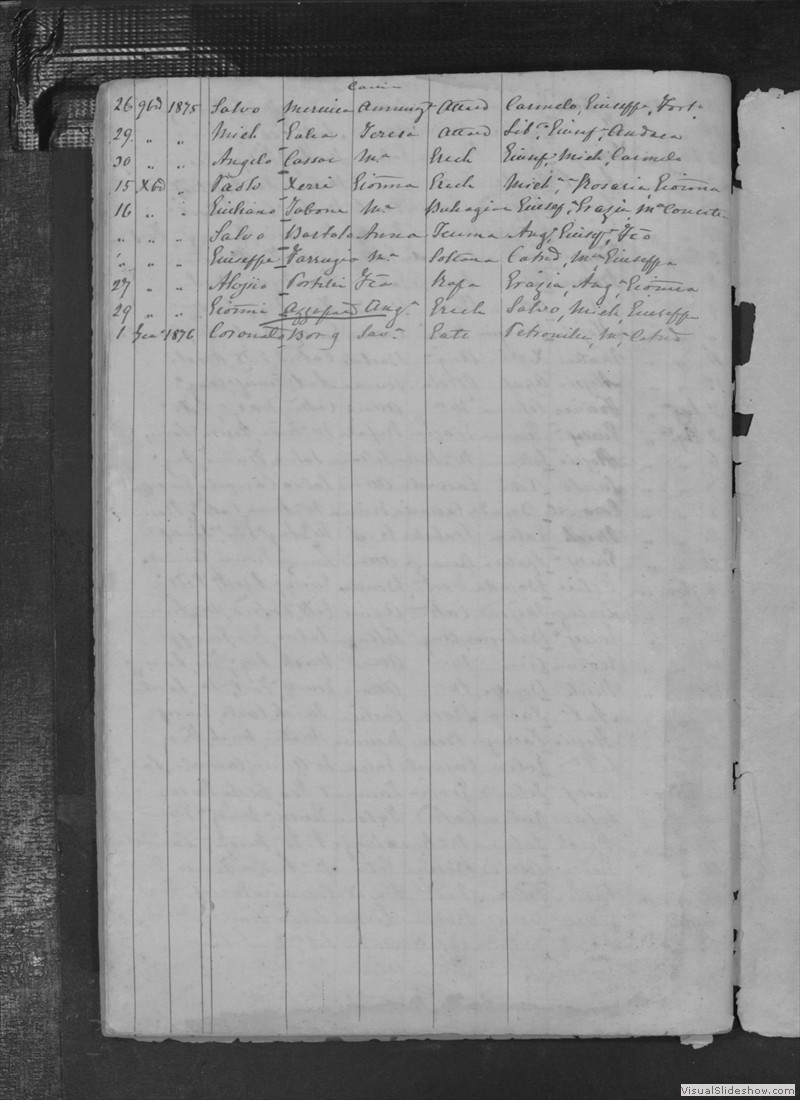 26 9bd 1875 Salvo Mercieca Annunzta Attard Carmelo, Giuseppe, Forta
29 " " Mich Galea Teresa Attard Liba, Giusepe Andrea
30 " " Angelo Cassar Ma Grech Giuse, Mich, Carmelo
15 Xbd " Paolo Xerri Giovna Grech Micha, Rosaria, Giovna
16 " " Giuliano Tabone Ma Buhagiar Giusepe, Grazia, Ma Concetta
" " " Salvo Bartolo Anna Teuma Anga, Giuse, Fco
" " " Giuseppe Farrugia Ma Soltana Catna, Ma Giuseppa
27 " " Aloysio Portelli Fca Rapa Grazia, Anga, Giovna
29 " " Giovni Azzopard Anga Grech Salvo, Mich, Giuseppe
1 Gena 1876 Coronato Borg Sava Gatt Petronilla, Ma Catna
VisualSlideshow.com